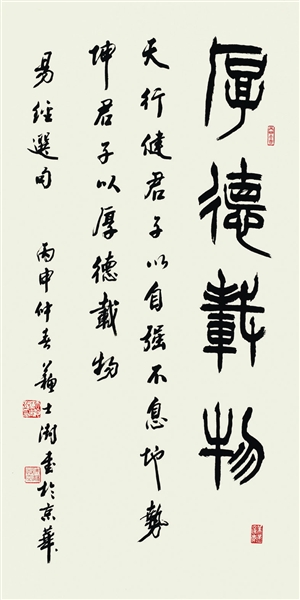 厚德載物
天行健君子以自強不息地勢
坤君子以厚德載物
易經選句 丙申仲春蘇士澍書於京華